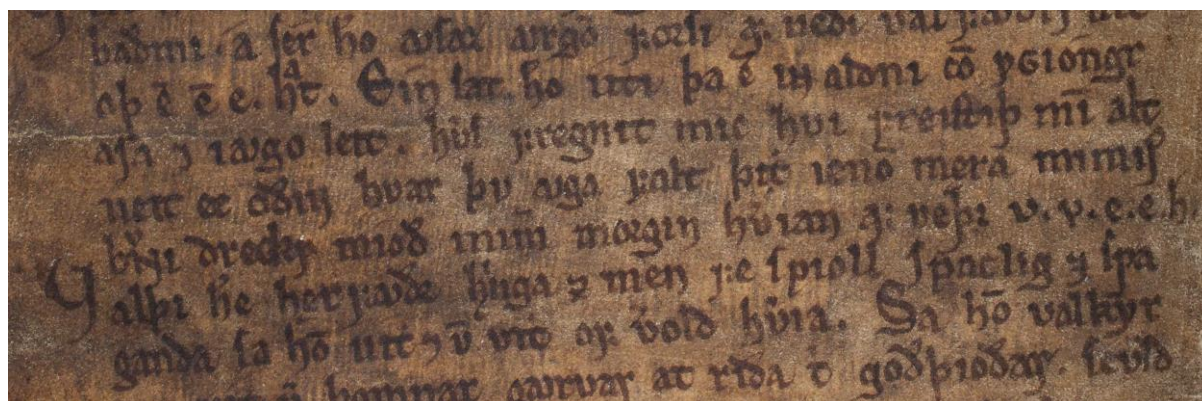 baðmi. a ser hō ausaz aurgō forsi af veði val fauðrs
ē ē e. hᵃt. Ein sat hō uti þa ē iɴ aldni cō ygiongr
asa ⁊ iaugo leit. hv̄s fregnit mic hvi freistiþ mī alt
ueit ec oðiɴ hvar þv auga falt iēnō mera mimis
brvɴi dreckr mioð mimˀ morgin hv̄ian af veþi v. v. e. e. h
Valþi hˀe herfauðr hˀnga ⁊ men fe spioll spaclig ⁊ spa
ganda sa hō uitt ⁊ v̄ vitt of vˀold hv̄ia. Sa hō valkyr
garvar at rida t̄ goðþioðar. sculd